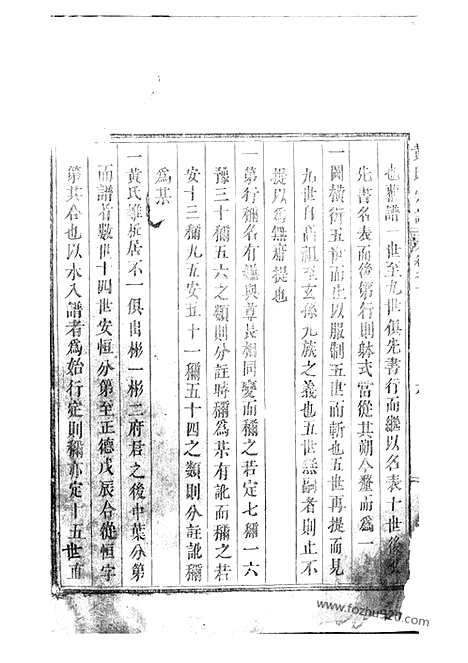 也舊譜一世至九世俱先書行而繼以名表十世後
先書名表而後第行則躰式當從其朔今釐而爲一
一圖橫衍五世而止以服制五世而斬也五世再提而見
九世自高祖至玄孫九族之義也五世無嗣者則止不
提以爲無齊提也
一第行稱名有繼與尊長相同變而稱之若定七稱一六
豫三十稱五六之類則分註時稱爲某有訛而稱之若
安十三稱九五安五十一稱五十四之類則分註訛稱
爲某
一黃氏雖析居不一俱出彬一彬二府君之後中葉分第
而譜者數世十四世安恒分第至正德戊辰合從恒字
第其合也以水入譜者爲始行定則稱亦定十五世直
www.fozhu920.com